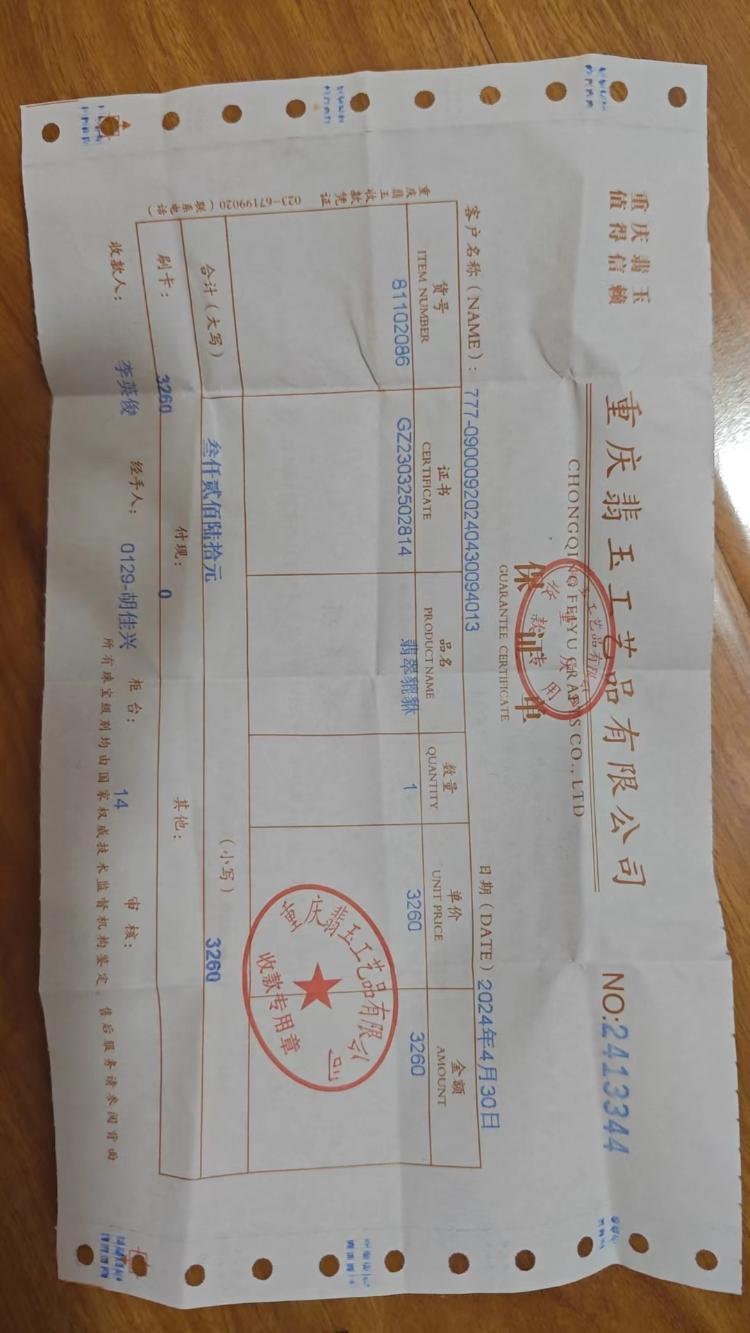 重庆翡玉
值得信赖
重庆翡玉工艺品有限公司
CHONGQING FEIYU CRAFTS CO., LTD
NO:2413344
保证单
GUARANTEE CERTIFICATE
客户名称（NAME）: 777-09000920240430094013 日期（DATE）2024年4月30日
货号 证书 品名 数量 单价 金额
ITEM NUMBER CERTIFICATE PRODUCT NAME QUANTITY UNIT PRICE AMOUNT
81102086 GZ23032502814 翡翠貔貅 1 3260 3260
合计（大写） 叁仟贰佰陆拾元 （小写） 3260
刷卡: 3260 付现: 0 其他:
收款人: 李英俊 经手人: 0129-胡佳兴 柜台: 14 审核:
所有珠宝级别均由国家权威技术监督机构鉴定，售后服务请参阅背面
重庆翡玉收款凭证 023-67199020（联系电话）
重庆翡玉工艺品有限公司
收款专用章